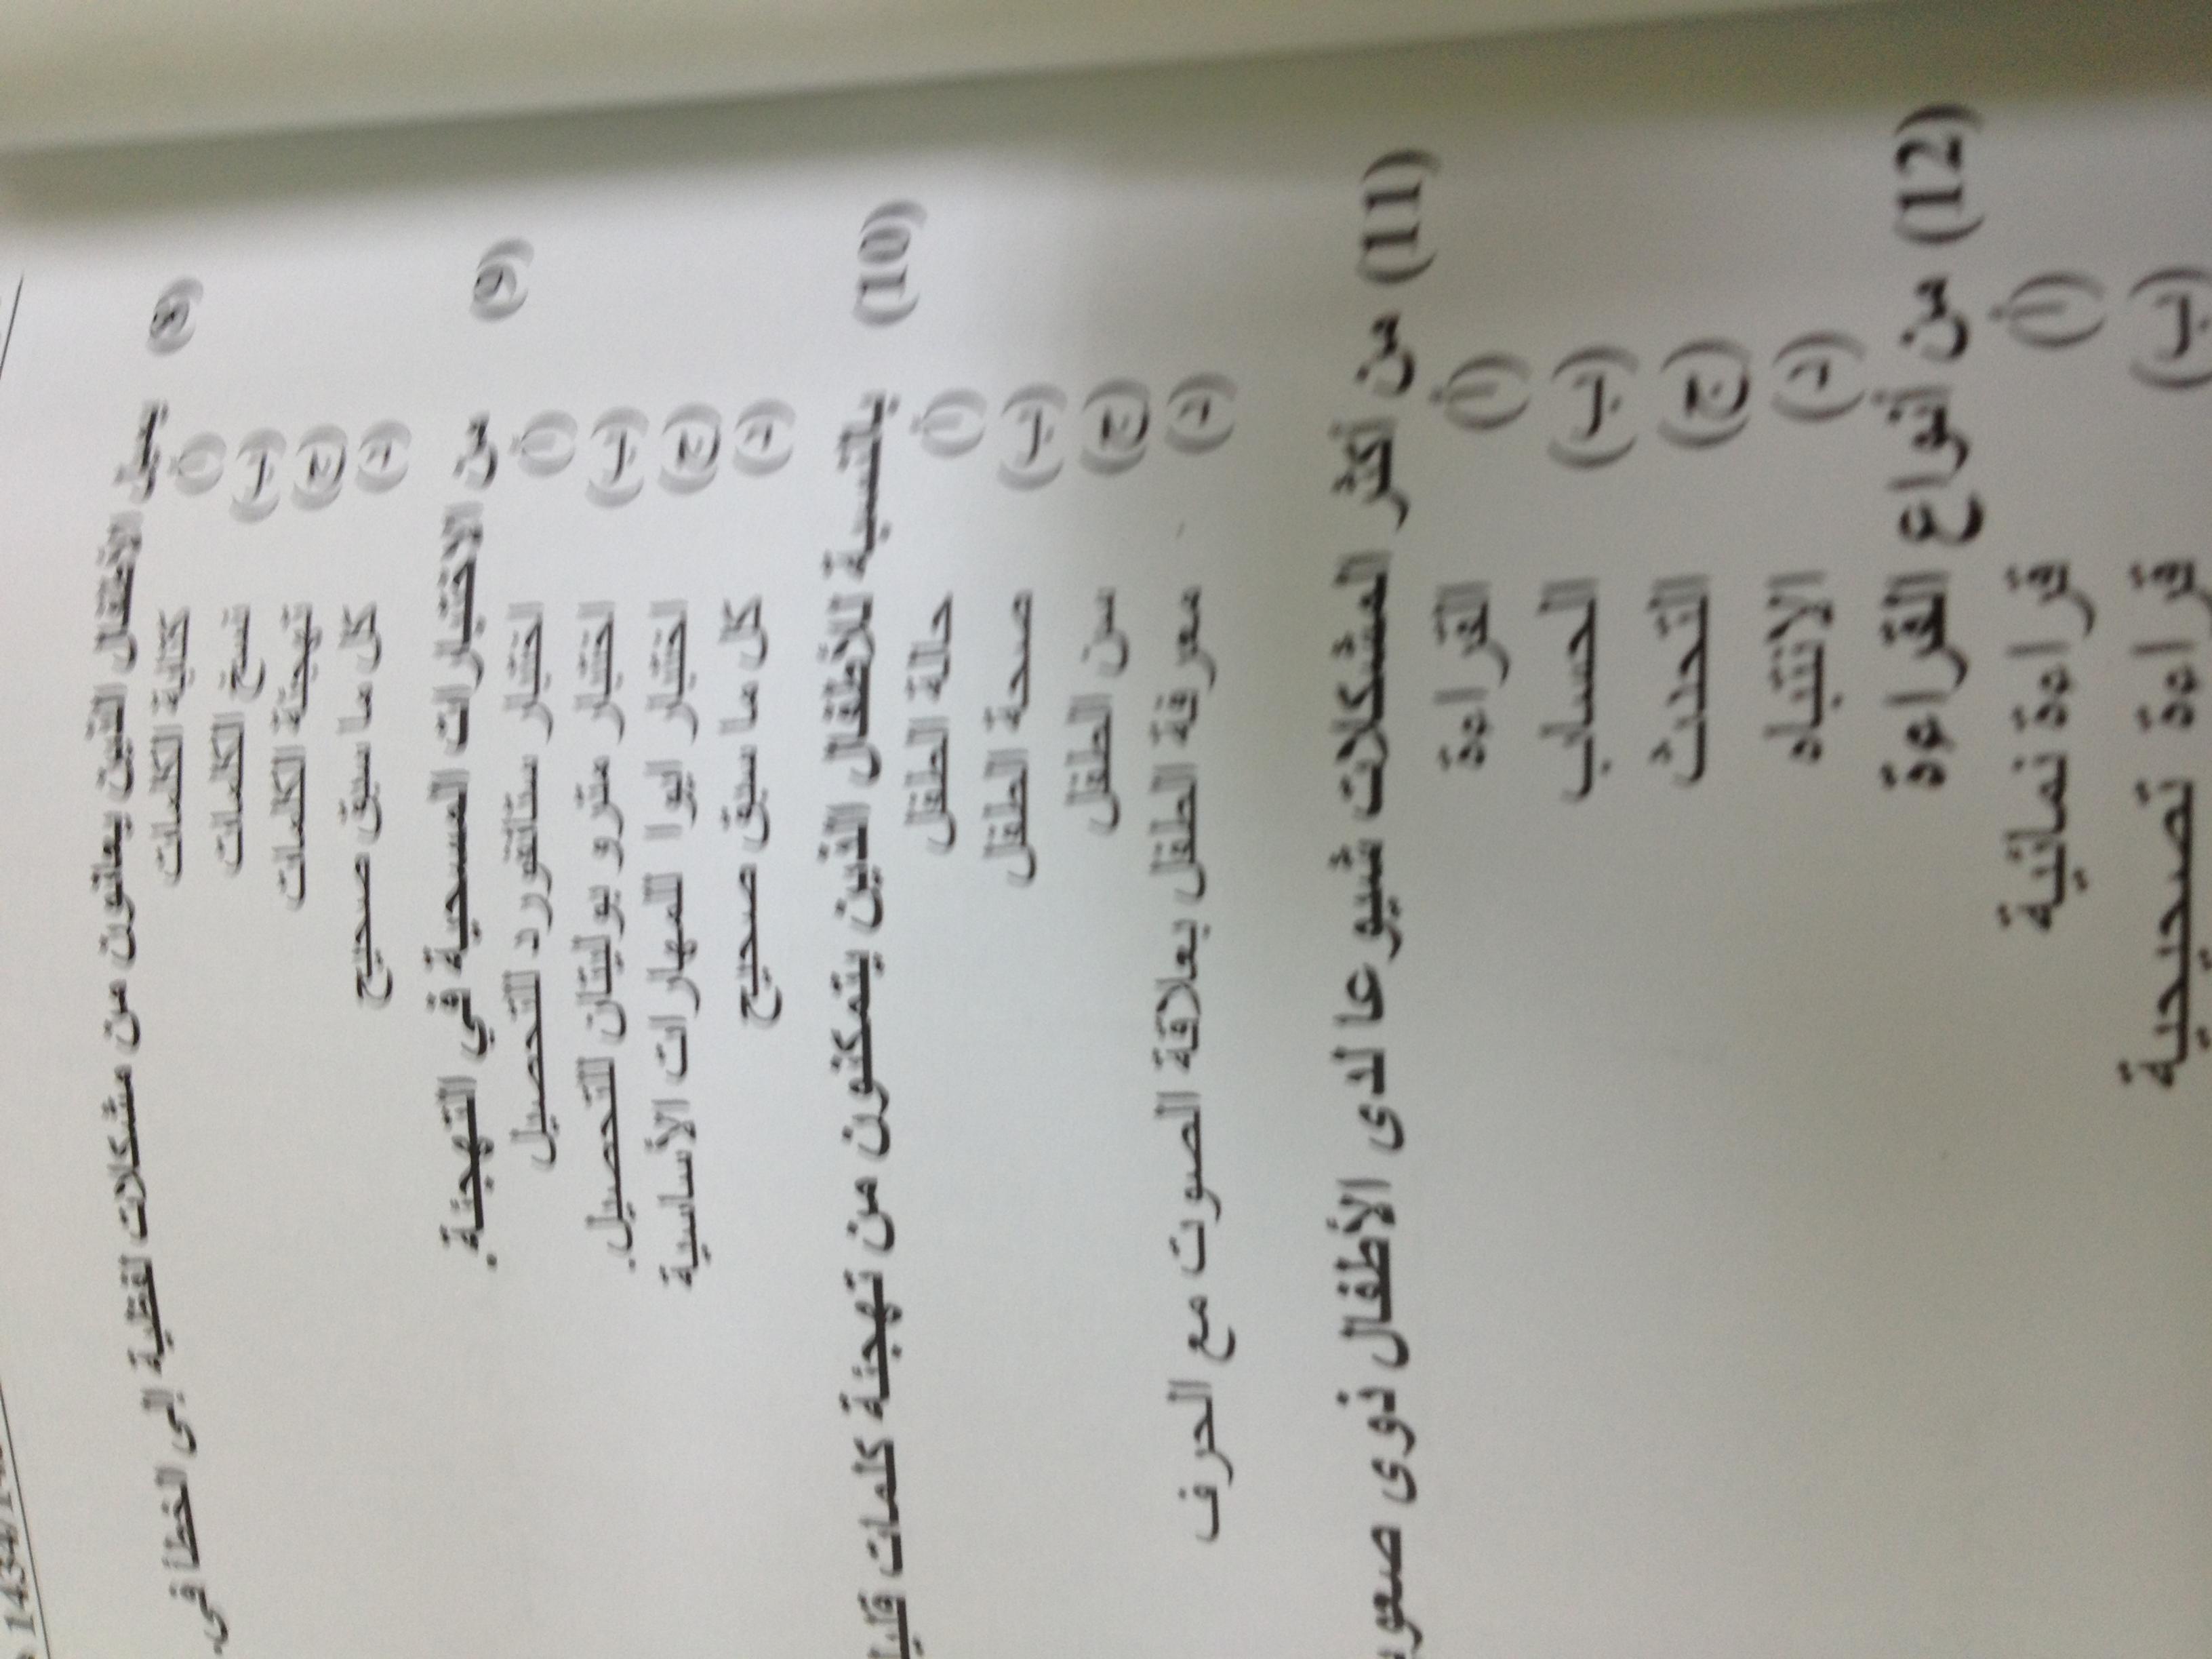 1434/1
(8) يميل الأطفال الذين يعانون من مشكلات لفظية إلى الخطأ في.
(أ) كتابة الكلمات
(ب) نسخ الكلمات
(ج) تهجئة الكلمات
(د) كل ما سبق صحيح
(9) من الاختبارات المسحية في التهجئة.
(أ) اختبار ستانفورد للتحصيل
(ب) اختبار متروبوليتان للتحصيل.
(ج) اختبار ايوا للمهارات الأساسية
(د) كل ما سبق صحيح
(10) بالنسبة للأطفال الذين يتمكنون من تهجئة كلمات
(أ) حالة الطفل
(ب) صحة الطفل
(ج) سن الطفل
(د) معرفة الطفل بعلاقة الصوت مع الحرف
(11) من أكثر المشكلات شيوعا لدى الأطفال ذوى
(أ) القراءة
(ب) الحساب
(ج) التحدث
(د) الانتباه
(12) من أنواع القراءة
(أ) قراءة نمائية
(ب) قراءة تصحيحية